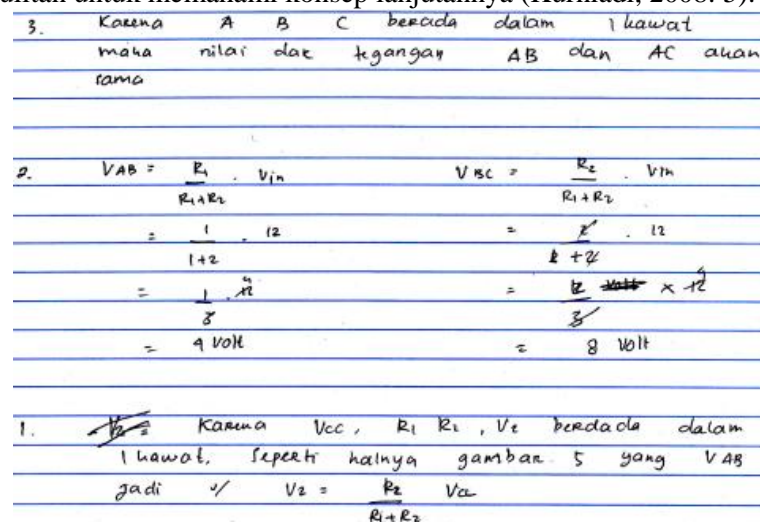 untuk memahami konsep lanjutannya
3. Karena A B C berada dalam 1 kawat
maka nilai dar tegangan AB dan AC akan
sama
2. VAB = R1 / R1+R2 . Vin VBC = R2 / R1+R2 . Vin
= 1 / 1+2 . 12 = 2 / 1+2 . 12
= 1 / 3 . 12 = 2 / 3 × 12
= 4 Volt = 8 Volt
1. Karena Vcc, R1 R2, V2 berdada dalam
1 kawat, seperti halnya gambar 5 yang VAB
Jadi u/ V2 = R2 / R1+R2 Vcc